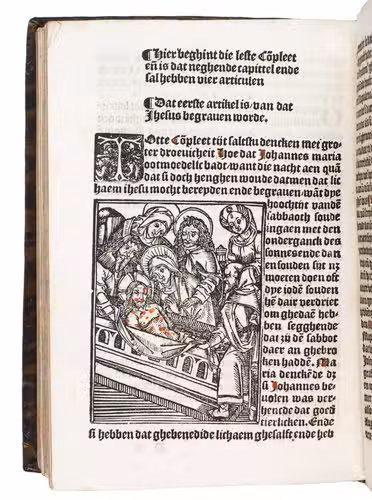 ¶Hier beghint die leste Cõpleet
eñ is dat neghende capittel ende
sal hebben vier articulen
¶Dat eerste artikel is van dat
Jhesus begrauen worde.
TOtte Cõpleet tijt saltstu dencken met gro
ter droeuicheit Hoe dat Johannes maria
ootmoedelic bad, want die nacht aen quã
dat si doch henghen woude datmen dat lic
haem ihesu mocht bereyden ende begrauẽ, wãt dye
hoochtijt vandẽ
sabbaoth soude
ingaen met den
onderganck des
sonnes ende dan
en souden sijt nz
moeten doen oft
dye iodẽ souden
hẽ dair verdriet
om ghedaẽ heb
ben segghende
dat zu dẽ sabbot
daer an ghebro
ken haddẽ. Ma
ria denckẽde dz
sũ Johannes be
uolen was ver
hencde dat goes
tierlicken. Ende
si hebben dat ghebenedide lichaem ghesalft ende heb